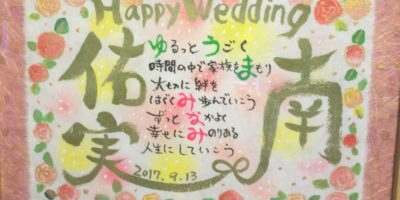 Happy Wedding
佑実
南
ゆるっとうごく
時間の中で家族をまもり
大切に絆を
はぐくみ歩んでいこう
ずっとなかよく
幸せにみのりある
人生にしていこう
2017.9.13